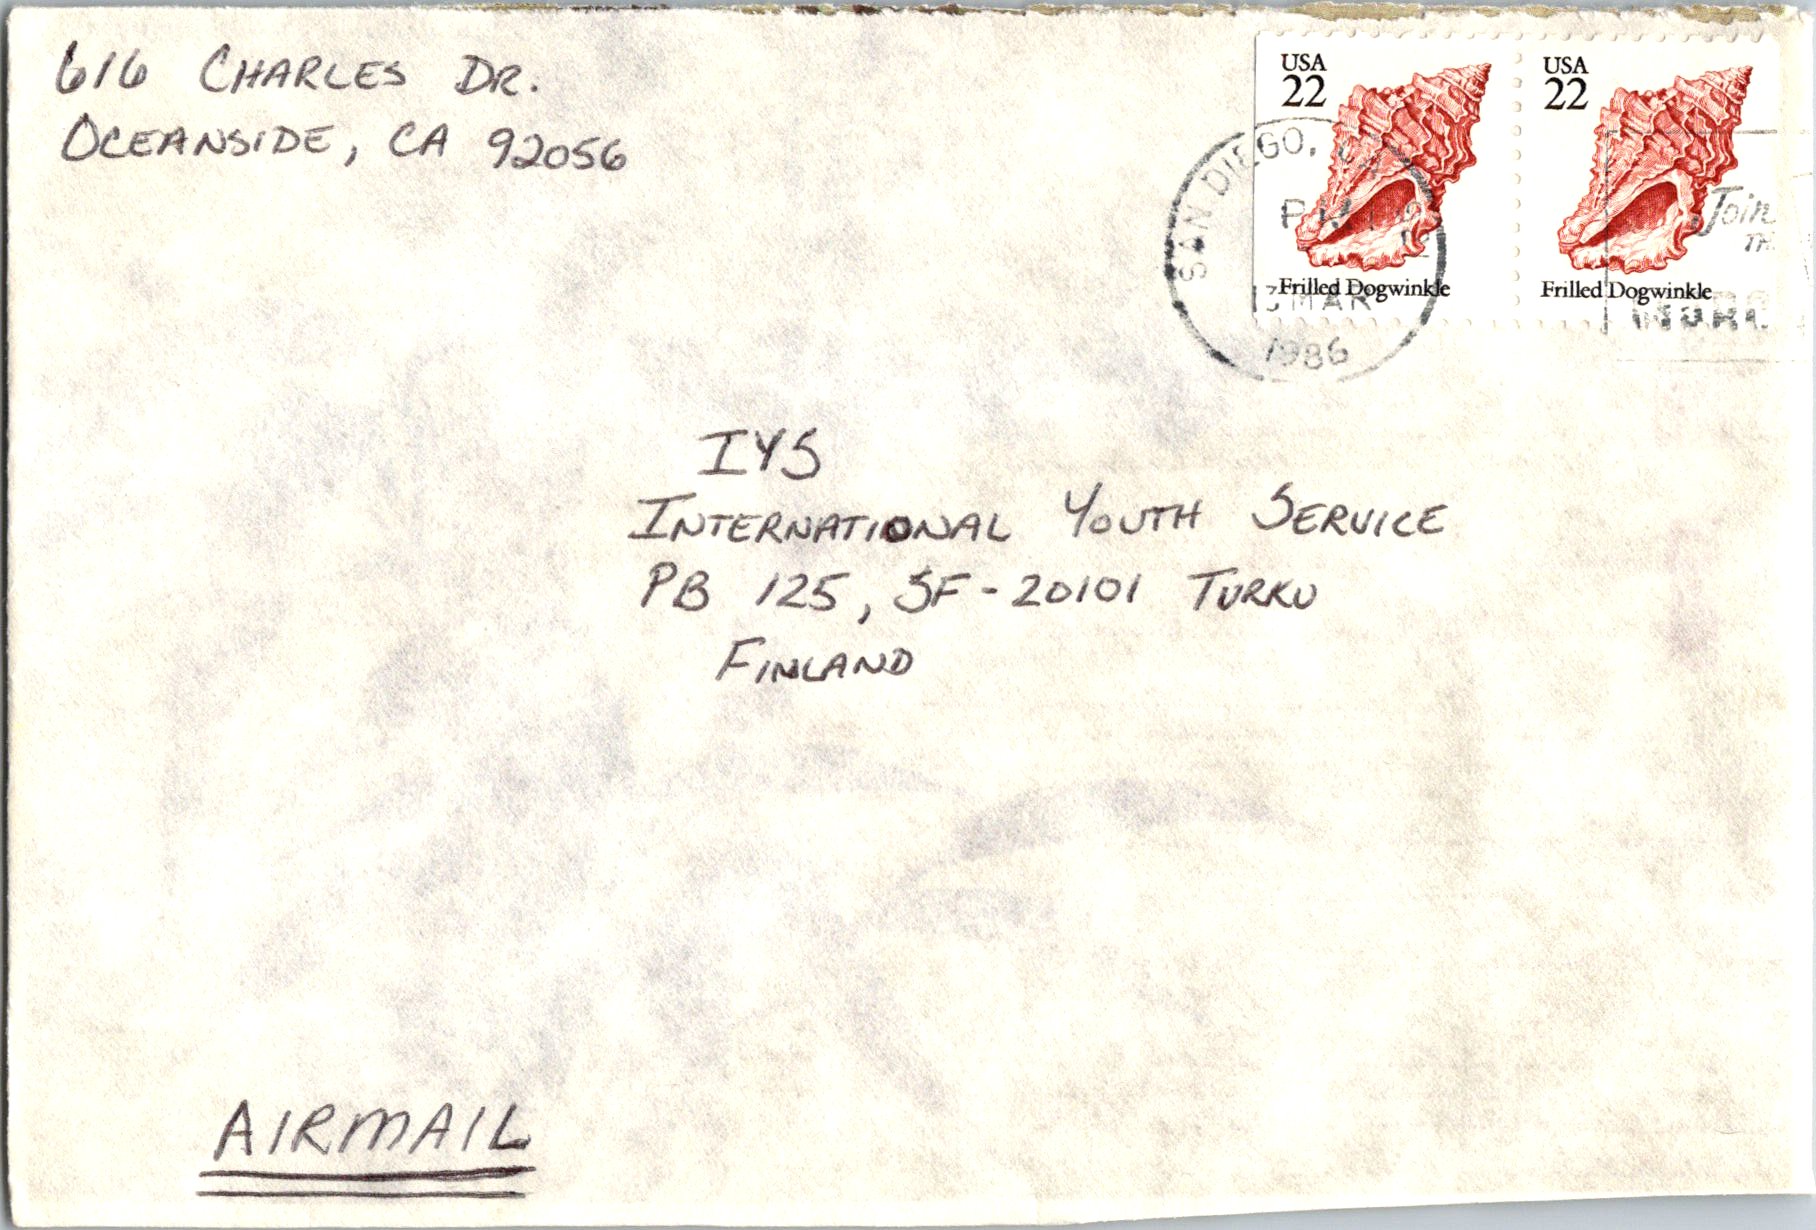 616 CHARLES DR.
OCEANSIDE, CA 92056
USA
22
Frilled Dogwinkle
USA
22
Frilled Dogwinkle
SAN DIEGO, CA
PM
13 MAR
1986
Join
IYS
INTERNATIONAL YOUTH SERVICE
PB 125, SF-20101 TURKU
FINLAND
AIRMAIL